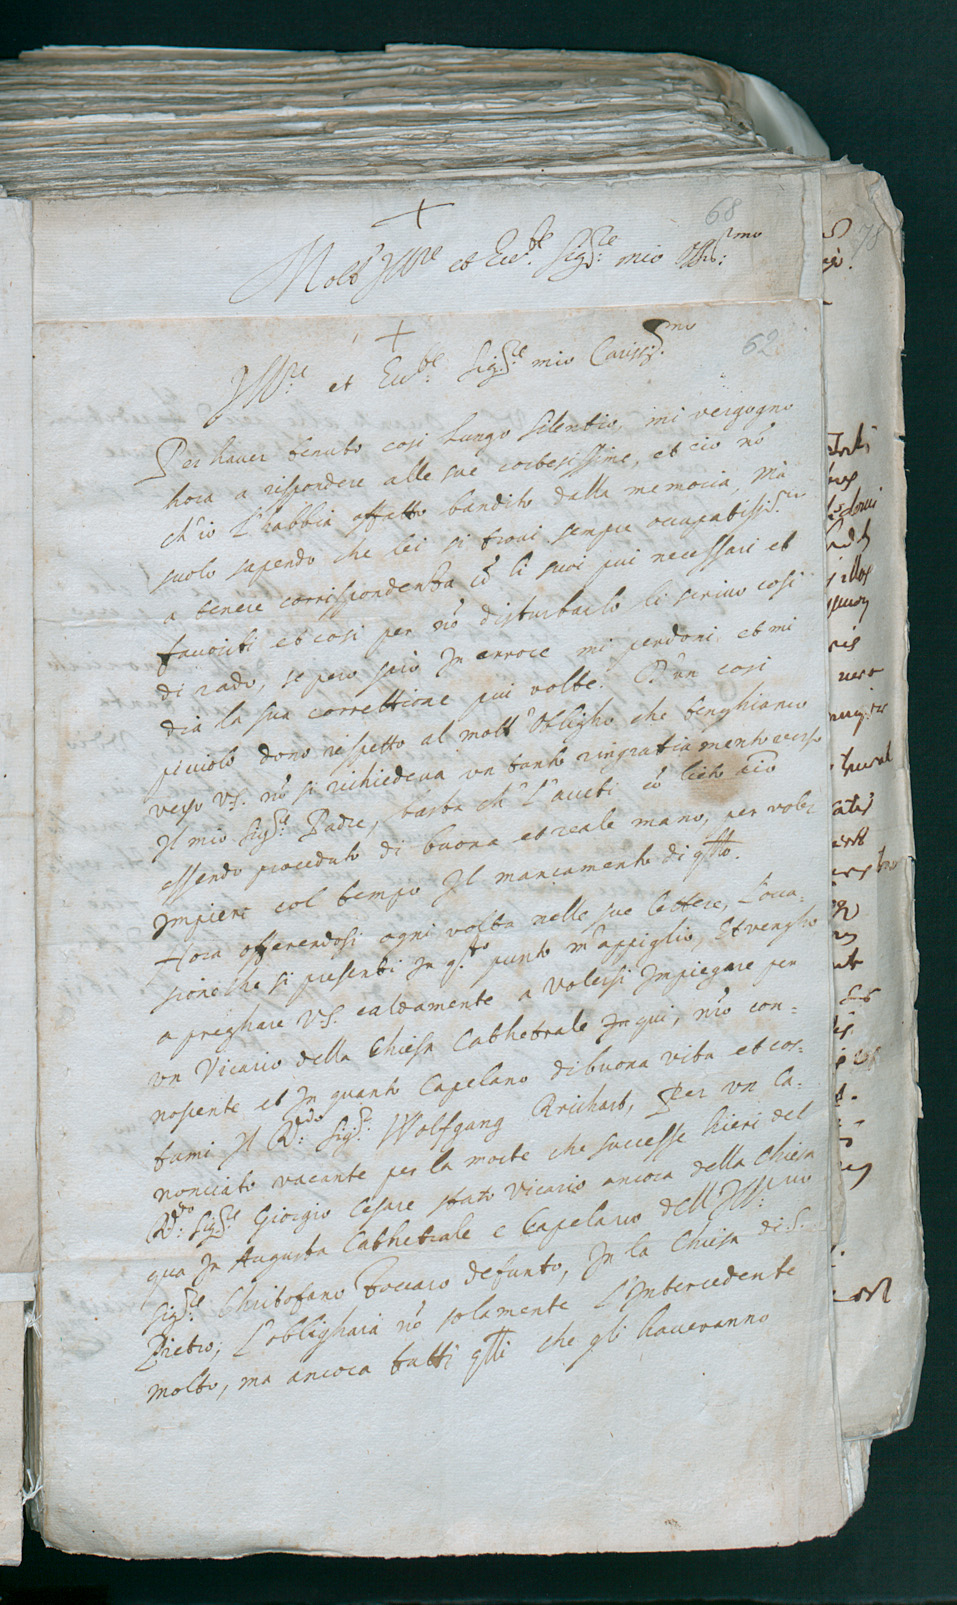 68
Molt' Ill.re et Ecc.te Sig.re mio Oss.mo
78
62
Ill.re et Ecc.te Sig.re mio Cariss.mo
Per haver tenuto cosi lungo silentio, mi vergogno
hora a rispondere alle sue cortesissime, et cio nõ
ch'io l'habbia affatto bandito dalla memoria, Mà
suolo sapendo che lei si trovi sempre occupatiss.mo
a tenere corrispondentia cõ li suoi piu necessari et
favoriti et cosi per nõ disturbarlo li scrivo cosi
di rado, se pero saro In errore mi perdoni et mi
dia la sua correttione piu volte. D'un cosi
picciolo dono rispetto al molt' Obligho che tenghiamo
verso V.S. nõ si richiedeva un tanto ringratiamento verso
Il mio Sig.re Padre, basta ch' l'accetti cõ lieto
essendo proceduto di buona et reale mano, per voler
Impieri col tempo Il mancamento di qsto.
Hora offerendosi ogni volta nelle sue lettere, l'occa=
sione che si presenti In q.to punto m'appiglio, et vengho
a preghare V.S. caldamente a volersi Impiegare per
un Vicario della Chiesa Cathetrale In qui, nõ con=
nosente et In quanto Capelano di buona vita et cos=
tumi Il R.do Sig.r Wolfgang Reichart, Per un Ca=
nonciato vacante per la morte che successe hieri del
R.do Sig.re Giorgio Cesare stato Vicario ancora della Chiesa
qua In Augusta Cathetrale e Capelano dell' Ill.mo
Sig.re Christofano Foccaro defunto, In la Chiesa di S.
Pietro, l'oblighara nõ solamente l'Intercedente
molto, ma ancora tutti qlli che gli haveranno